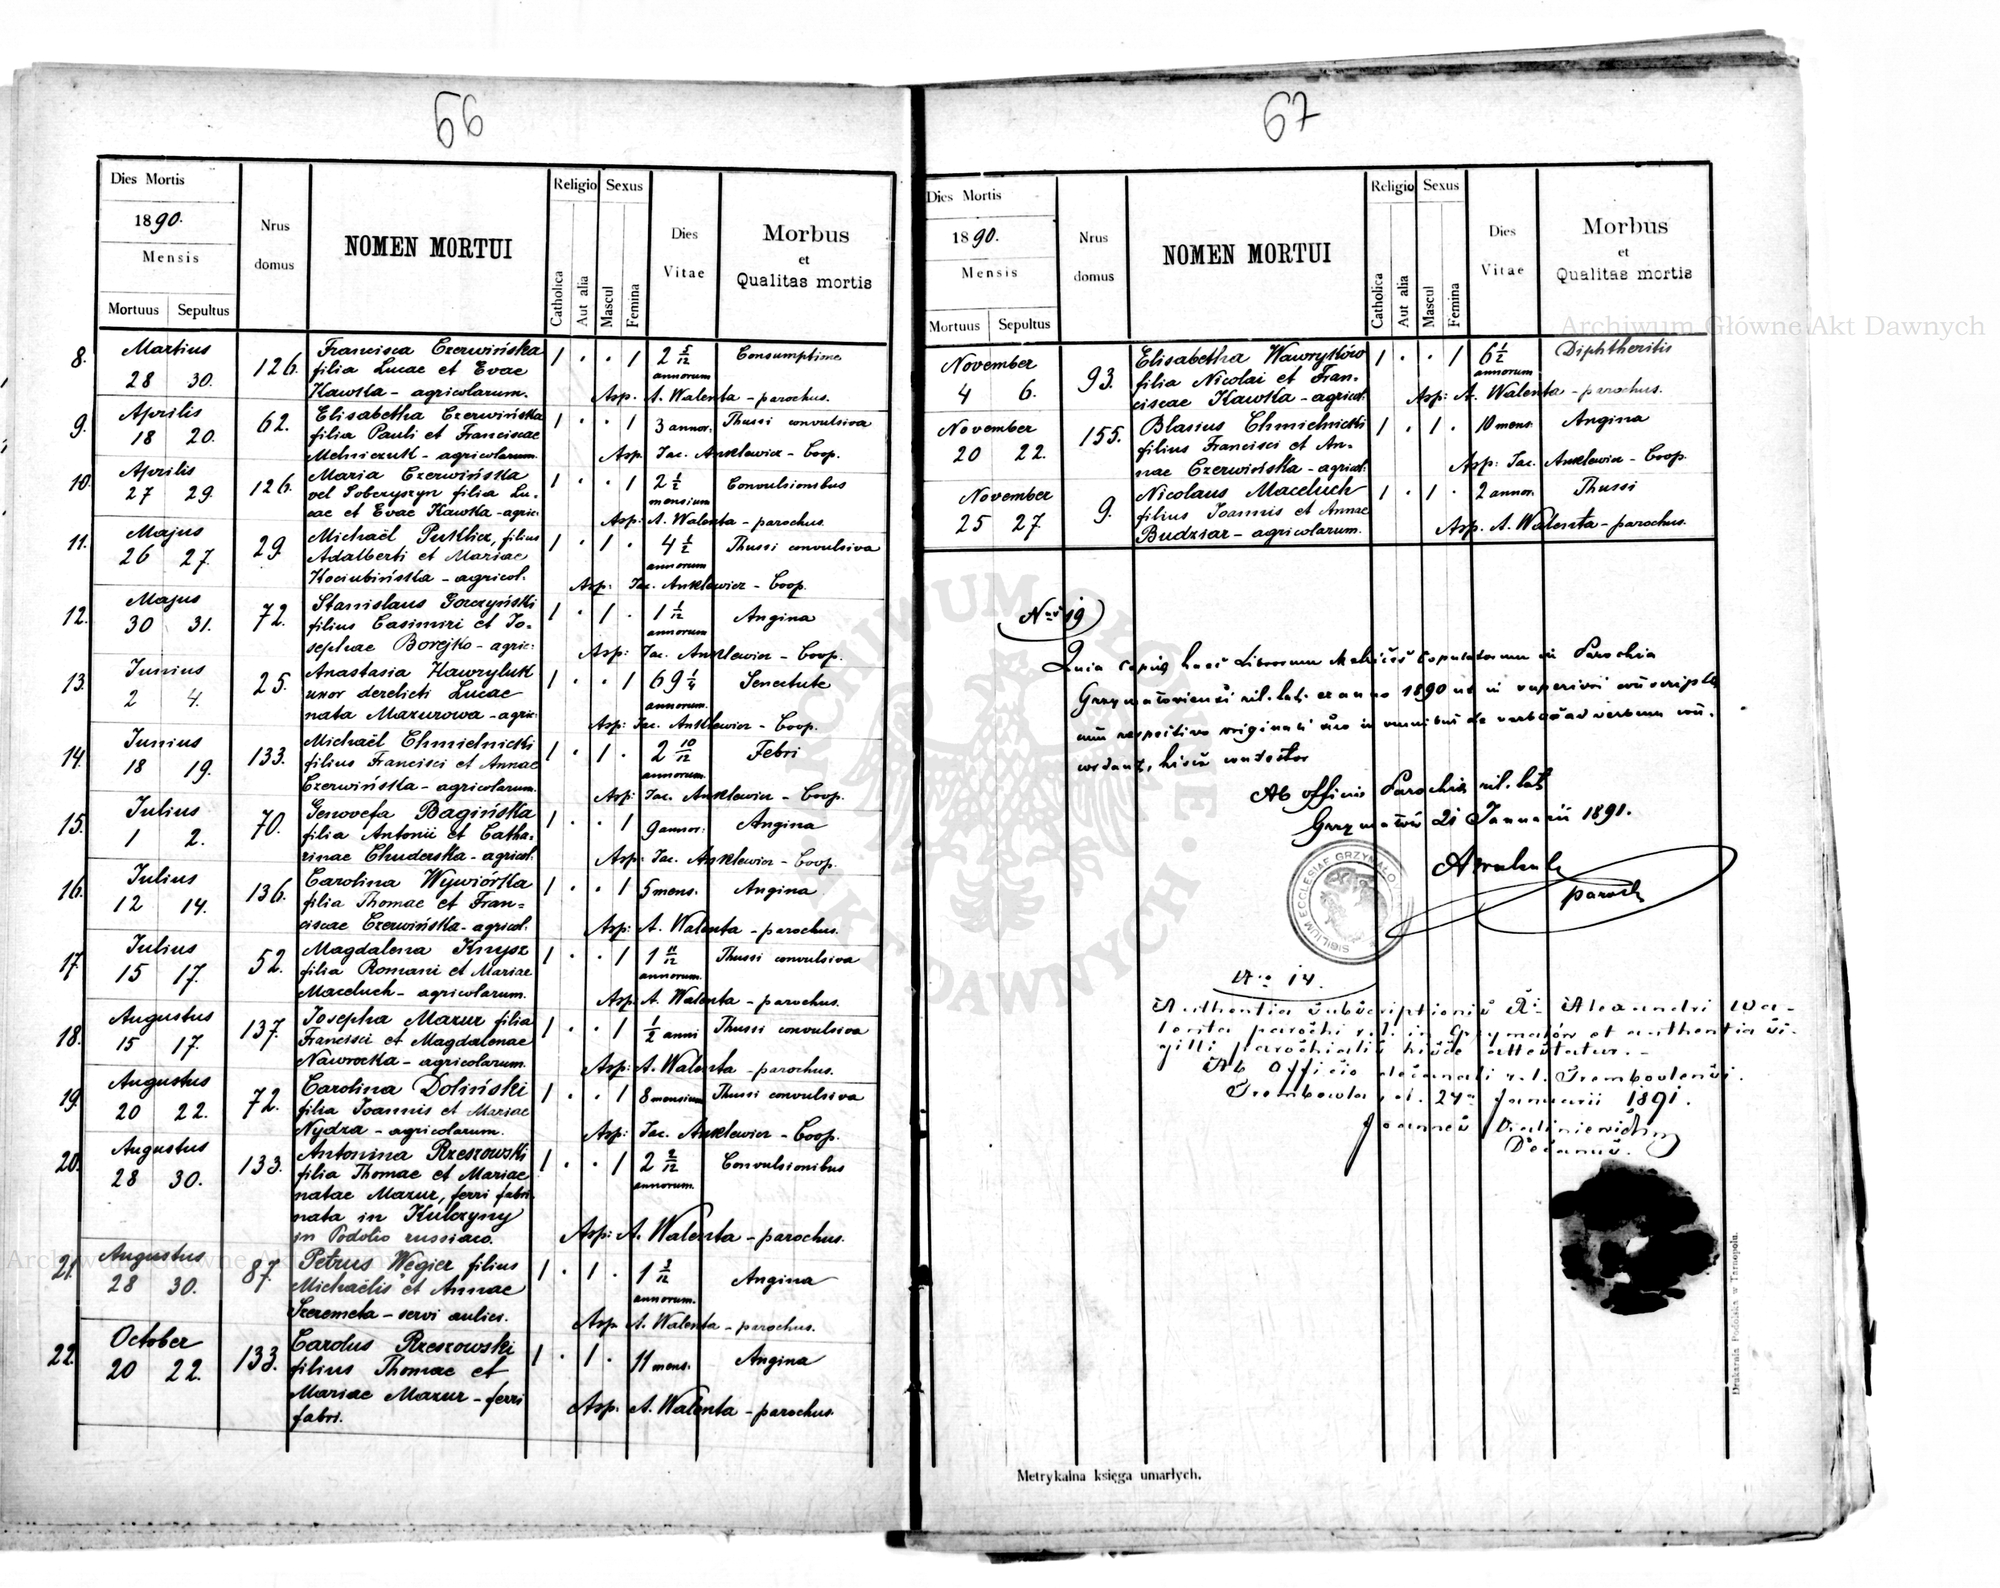 66
Dies Mortis
1890.
Mensis
Mortuus Sepultus
Nrus domus
NOMEN MORTUI
Religio
Catholica
Aut alia
Sexus
Mascul
Femina
Dies Vitae
Morbus
et
Qualitas mortis
8. Martius 28 30. 126. Francisca Czerwińska 1 . . 1 2 5/12 annorum Consumptione
filia Lucae et Evae
Kawska - agricolarum. Asp. A. Walenta - parochus.
9. Aprilis 18 20. 62. Elisabetha Czerwińska 1 . . 1 3 annor: Thussi convulsiva
filia Pauli et Franciscae
Melniczuk - agricolarum. Asp. Jac. Anklewicz - Coop.
10. Aprilis 27 29. 126. Maria Czerwińska 1 . . 1 2 1/2 mensium Convulsionibus
vel Soberyszyn filia Lu-
cae et Evae Kawska - agric: Asp: A. Walenta - parochus.
11. Majus 26 27. 29. Michaël Puklicz, filius 1 . 1 . 4 1/2 annorum Thussi convulsiva
Adalberti et Mariae
Kociubińska - agricol. Asp: Jac. Anklewicz - Coop.
12. Majus 30 31. 72. Stanislaus Gorczyński 1 . 1 . 1 1/12 annorum Angina
filius Casimiri et Jo-
sephae Borejko - agric: Asp: Jac. Anklewicz - Coop.
13. Junius 2 4. 25. Anastasia Hawryluk 1 . . 1 69 1/4 annorum. Senectute
uxor derelicti Lucae
nata Mazurowa - agric: Asp: Jac. Anklewicz - Coop.
14. Junius 18 19. 133. Michaël Chmielnicki 1 . 1 . 2 10/12 annorum. Febri
filius Francisci et Annae
Czerwińska - agricolarum. Asp: Jac. Anklewicz - Coop.
15. Julius 1 2. 70. Genovefa Bagińska 1 . . 1 9 annor: Angina
filia Antonii et Catha-
rinae Chuderska - agricol. Asp: Jac. Anklewicz - Coop.
16. Julius 12 14. 136. Carolina Wywiórska 1 . . 1 5 mens. Angina
filia Thomae et Fran-
ciscae Czerwińska - agricol. Asp: A. Walenta - parochus.
17. Julius 15 17. 52. Magdalena Knysz 1 . . 1 1 11/12 annorum. Thussi convulsiva
filia Romani et Mariae
Maceluch - agricolarum. Asp: A. Walenta - parochus.
18. Augustus 15 17. 137. Josepha Mazur filia 1 . . 1 1/2 anni Thussi convulsiva
Francisci et Magdalenae
Nawrocka - agricolarum. Asp: A. Walenta - parochus.
19. Augustus 20 22. 72. Carolina Doliński 1 . . 1 8 mensium Thussi convulsiva
filia Joannis et Mariae
Nydza - agricolarum. Asp: Jac. Anklewicz - Coop.
20. Augustus 28 30. 133. Antonina Rzeszowski 1 . . 1 2 2/12 annorum. Convulsionibus
filia Thomae et Mariae
natae Mazur, ferri fabri.
nata in Kulczyny
in Podolio russiaco. Asp: A. Walenta - parochus.
21. Augustus 28 30. 87. Petrus Węgier filius 1 . 1 . 1 3/12 annorum. Angina
Michaëlis et Annae
Szeremeta - servi aulici. Asp. A. Walenta - parochus.
22. October 20 22. 133. Carolus Rzeszowski 1 . 1 . 11 mens. Angina
filius Thomae et
Mariae Mazur - ferri Asp: A. Walenta - parochus.
fabri.
67
Dies Mortis
1890.
Mensis
Mortuus Sepultus
Nrus domus
NOMEN MORTUI
Religio
Catholica
Aut alia
Sexus
Mascul
Femina
Dies Vitae
Morbus
et
Qualitas mortis
November 4 6. 93. Elisabetha Wawryków 1 . . 1 6 1/2 annorum Diphtheritis
filia Nicolai et Fran-
ciscae Kawska - agricol. Asp: A. Walenta - parochus.
November 20 22. 155. Blasius Chmielnicki 1 . 1 . 10 mens. Angina
filius Francisci et An-
nae Czerwińska - agricol. Asp: Jac. Anklewicz - Coop.
November 25 27. 9. Nicolaus Maceluch 1 . 1 . 2 annor. Thussi
filius Joannis et Annae
Budziar - agricolarum. Asp. A. Walenta - parochus.
Nrus 19
Quia copia haec Librorum Metrices Copulatorum in Parochia
Grzymałoviensi rit. lat. ex anno 1890 ut in superiori
respective originali suo in omnibus de verbo ad verbum con-
cordant, hisce contestor
Ab officio Parochiae rit. lat.
Grzymałów 21 Januarii 1891.
A Walenta
paroch
SIGILLUM ECCLESIAE GRZYMAŁO
No 14.
Authentia subscriptionis Alexandri Wa-
lenta parochi r. l. in Grzymałów et authentia si-
gilli parochialis hisce attestatur. -
Ab Officio decanali r. l. Tremboulensi.
Trembowla, d. 24a Januarii 1891.
Joannes
Decanus.
Metrykalna księga umarłych.
Drukarnia Podolska w Tarnopolu.
Archiwum Główne Akt Dawnych
Archiwum Główne Akt Dawnych
ARCHIWUM GŁÓWNE AKT DAWNYCH